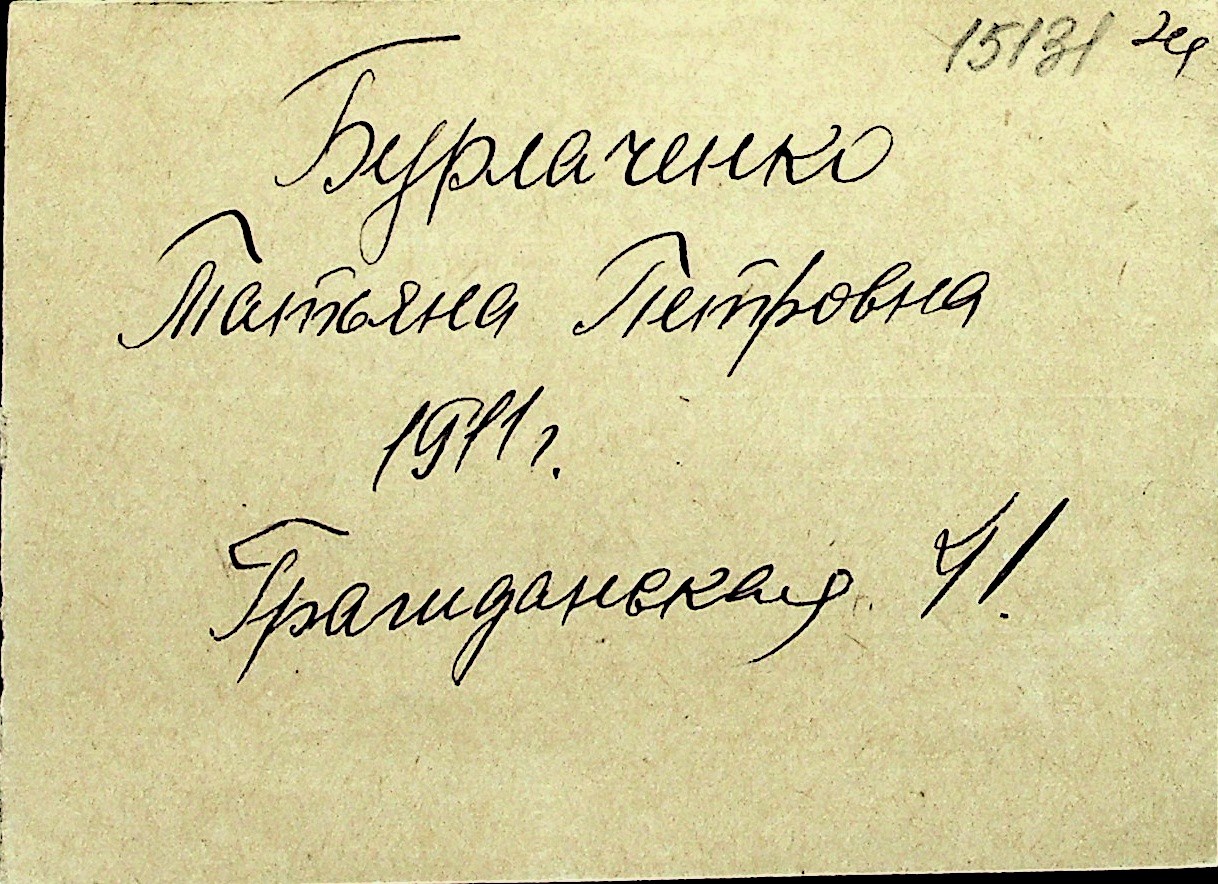 15131
Бурлаченко
Татьяна Петровна
1911 г.
Гражданская 41.